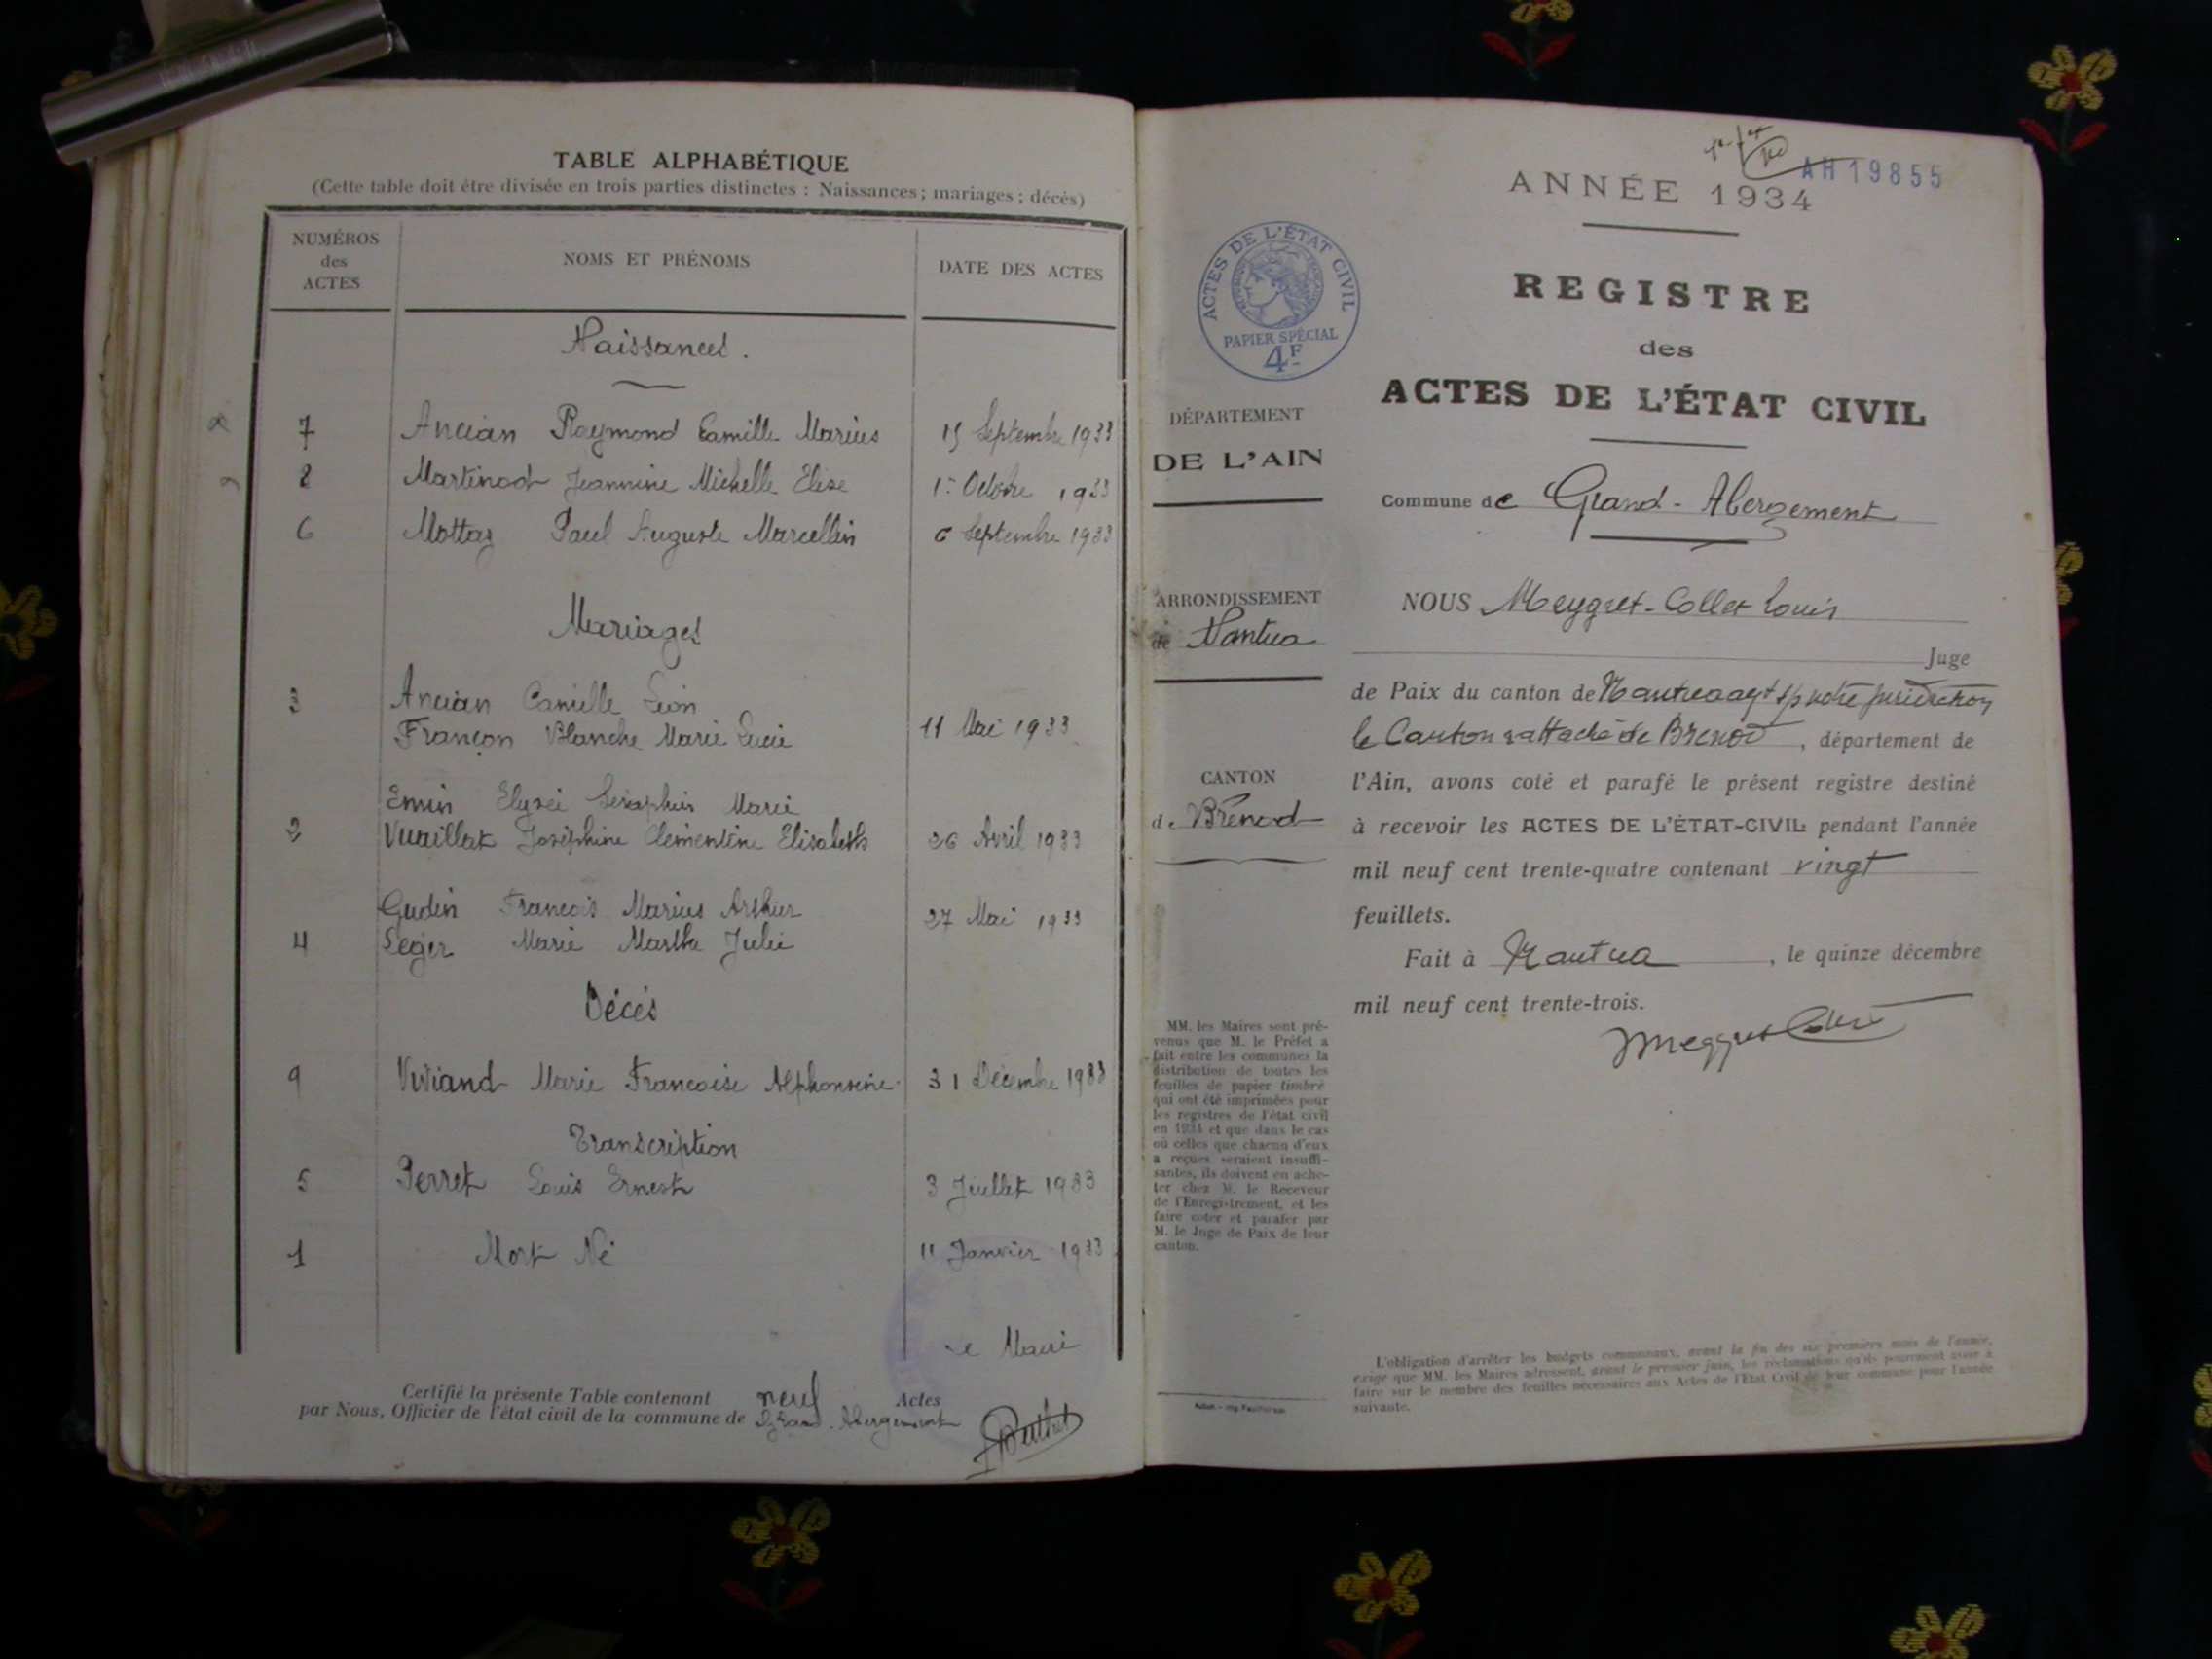 TABLE ALPHABÉTIQUE
(Cette table doit être divisée en trois parties distinctes : Naissances; mariages; décès)
NUMÉROS des ACTES
NOMS ET PRÉNOMS
DATE DES ACTES
Naissances.
7 Ancian Raymond Camille Marius 15 Septembre 1933
8 Martinod Jeannine Michelle Elise 1er Octobre 1933
6 Mottaz Paul Auguste Marcellin 6 Septembre 1933
Mariages
3 Ancian Camille Léon
Françon Blanche Marie Lucie 11 Mai 1933
Emin Elysée Séraphin Marie
2 Vuaillat Joséphine Clémentine Elisabeth 26 Avril 1933
Gudin François Marius Arthur 27 Mai 1933
4 Leger Marie Marthe Julie
Décès
9 Viviand Marie Francoise Alphonsine 31 Décembre 1933
Transcription
5 Perret Louis Ernest 3 Juillet 1933
1 Mort Né 11 Janvier 1933
Le Maire
Certifié la présente Table contenant neuf Actes
par Nous, Officier de l'état civil de la commune de Grand-Abergement
AH 19855
ANNÉE 1934
ACTES DE L'ÉTAT CIVIL
PAPIER SPÉCIAL
4F
REGISTRE
des
ACTES DE L'ÉTAT CIVIL
DÉPARTEMENT
DE L'AIN
Commune de Grand-Abergement
ARRONDISSEMENT
de Nantua
CANTON
de Brénod
NOUS Meygret-Collet Louis
Juge
de Paix du canton de Nantua ayt s/s notre juridiction
le Canton rattaché de Brénod, département de
l'Ain, avons coté et parafé le présent registre destiné
à recevoir les ACTES DE L'ÉTAT-CIVIL pendant l'année
mil neuf cent trente-quatre contenant vingt
feuillets.
Fait à Nantua, le quinze décembre
mil neuf cent trente-trois.
MM. les Maires sont pré-
venus que M. le Préfet a
fait entre les communes la
distribution de toutes les
feuilles de papier timbré
qui ont été imprimées pour
les registres de l'état civil
en 1934 et que dans le cas
où celles que chacun d'eux
a reçues seraient insuffi-
santes, ils doivent en ache-
ter chez M. le Receveur
de l'Enregistrement, et les
faire coter et parafer par
M. le Juge de Paix de leur
canton.
L'obligation d'arrêter les budgets communaux, avant la fin des six premiers mois de l'année,
exige que MM. les Maires adressent, avant le premier juin, les réclamations qu'ils pourraient avoir à
faire sur le nombre des feuilles nécessaires aux Actes de l'Etat Civil de leur commune pour l'année
suivante.